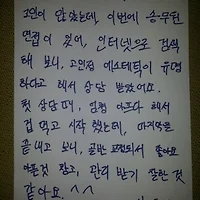 고민이 많았는데, 이번에 승무원
면접이 있어, 인터넷으로 검색
해 보니, 고인정 에스테틱이 유명
하다고 해서 상담 받았어요.
첫 상담때, 엄청 아프다 해서
겁 먹고 시작했는데, 마지막을
끝내고 보니, 골반 교정되서 좋아요
아픈것 참고, 관리 받기 잘한 것
같아요. ^^